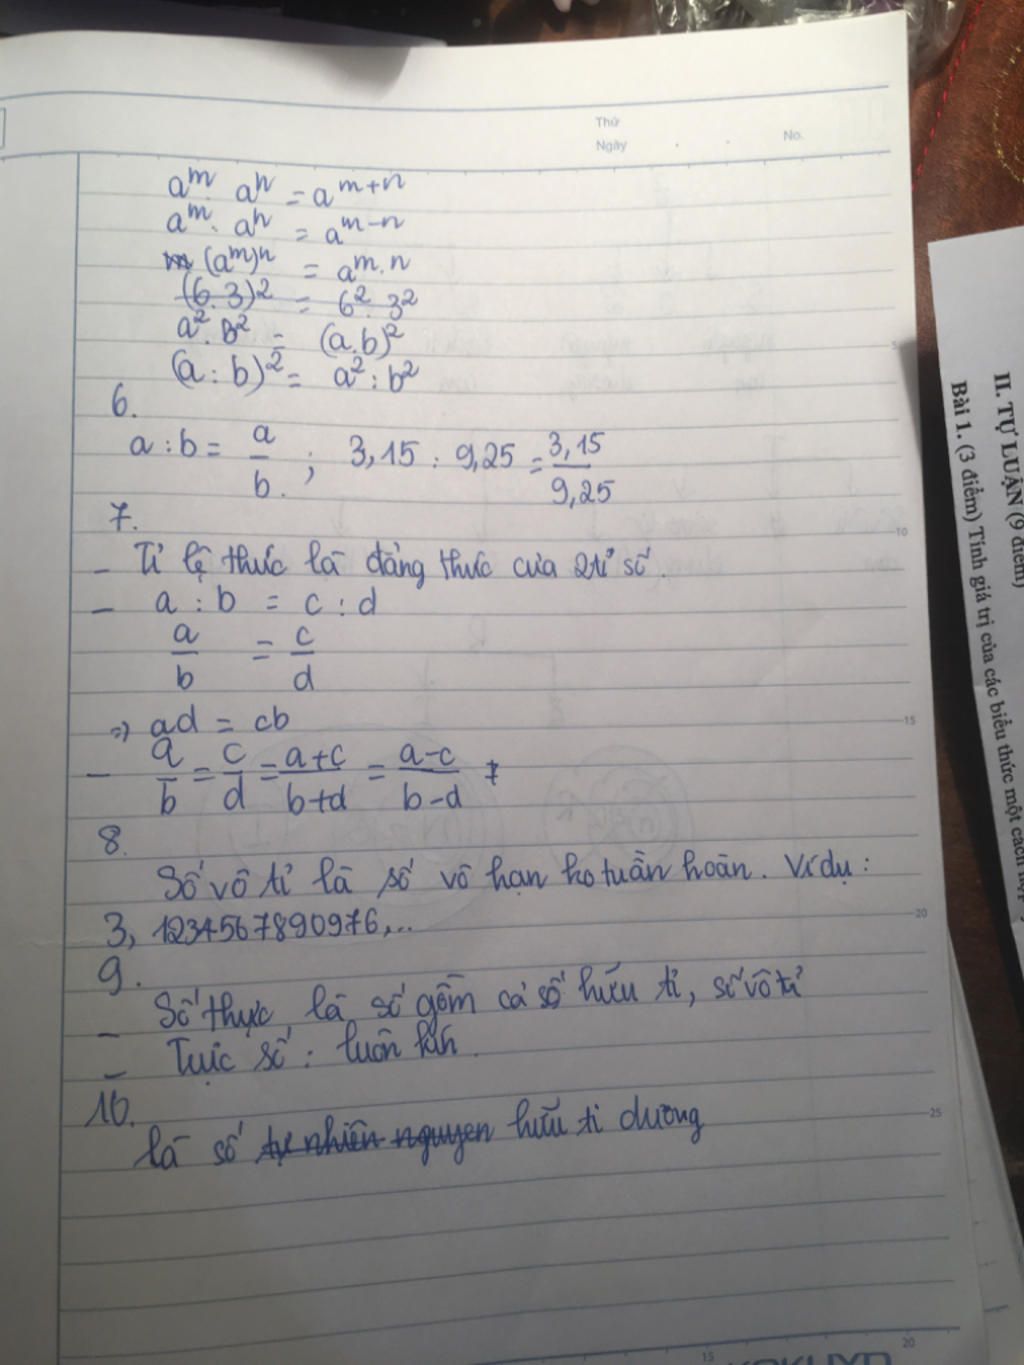 Thứ
Ngày . . No.
aᵐ. aⁿ = aᵐ⁺ⁿ
aᵐ. aⁿ = aᵐ⁻ⁿ
(aᵐ)ⁿ = aᵐ·ⁿ
(6.3)² = 6². 3²
a². B² = (a.b)²
(a : b)² = a² : b²
6.
a : b = a/b. ; 3,15 : 9,25 = 3,15/9,25
7.
- Tỉ lệ thức là đẳng thức của 2 tỉ số.
- a : b = c : d
a/b = c/d
=> ad = cb
- a/b = c/d = a+c/b+d = a-c/b-d
8.
Số vô tỉ là số vô hạn ko tuần hoàn. Ví dụ :
3, 1234567890976,...
9.
- Số thực là số gồm cả số hữu tỉ, số vô tỉ
- Trực số :
10.
là số tự nhiên nguyen hữu tỉ dương
5
10
15
20
25
15
20
II. TỰ LUẬN (9 điểm)
Bài 1. (3 điểm) Tính giá trị của các biểu thức một cách